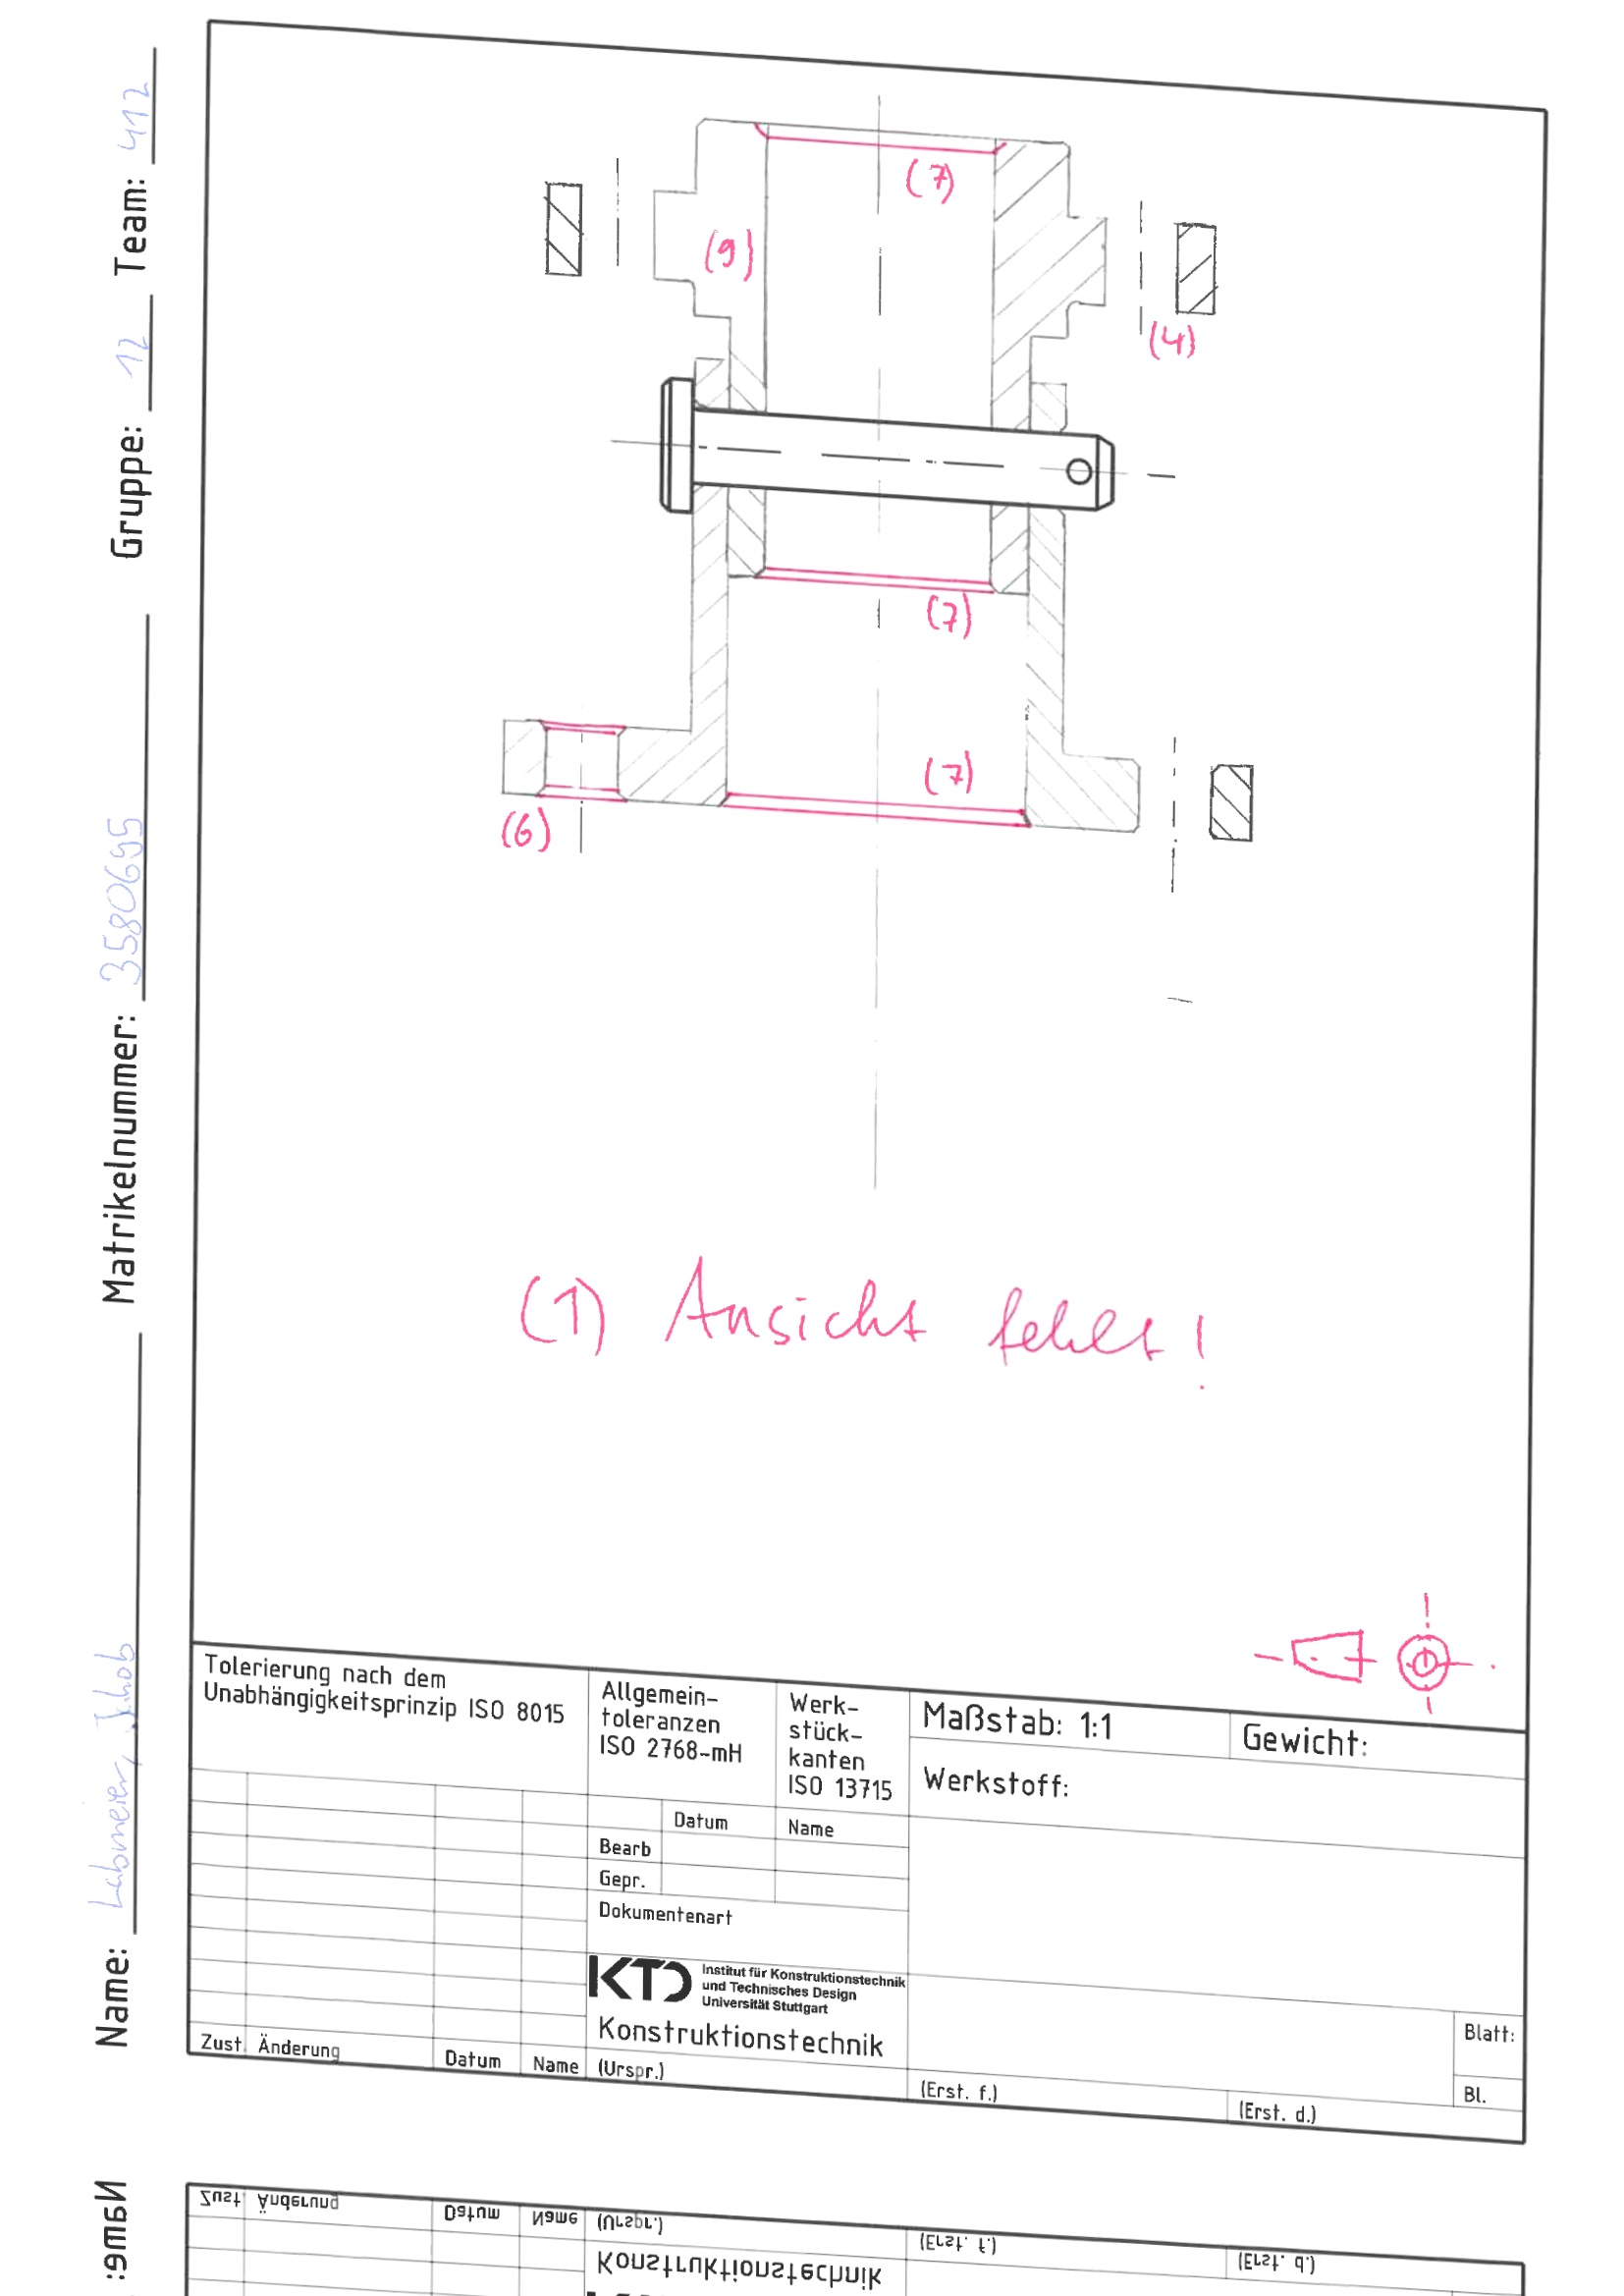 Name: Labmeier, Jakob Matrikelnummer: 3580695 Gruppe: 12 Team: 412
(7)
(9)
(4)
(7)
(7)
(6)
(1) Ansicht fehlt!
Tolerierung nach dem
Unabhängigkeitsprinzip ISO 8015
Allgemein-
toleranzen
ISO 2768-mH
Werk-
stück-
kanten
ISO 13715
Maßstab: 1:1
Gewicht:
Werkstoff:
Datum
Name
Bearb
Gepr.
Dokumentenart
KTD
Institut für Konstruktionstechnik
und Technisches Design
Universität Stuttgart
Konstruktionstechnik
Zust. Änderung Datum Name (Urspr.)
(Erst. f.)
(Erst. d.)
Blatt:
Bl.
Name:
Zust. Änderung Datum Name (Urspr.)
(Erst. f.)
(Erst. d.)
Konstruktionstechnik